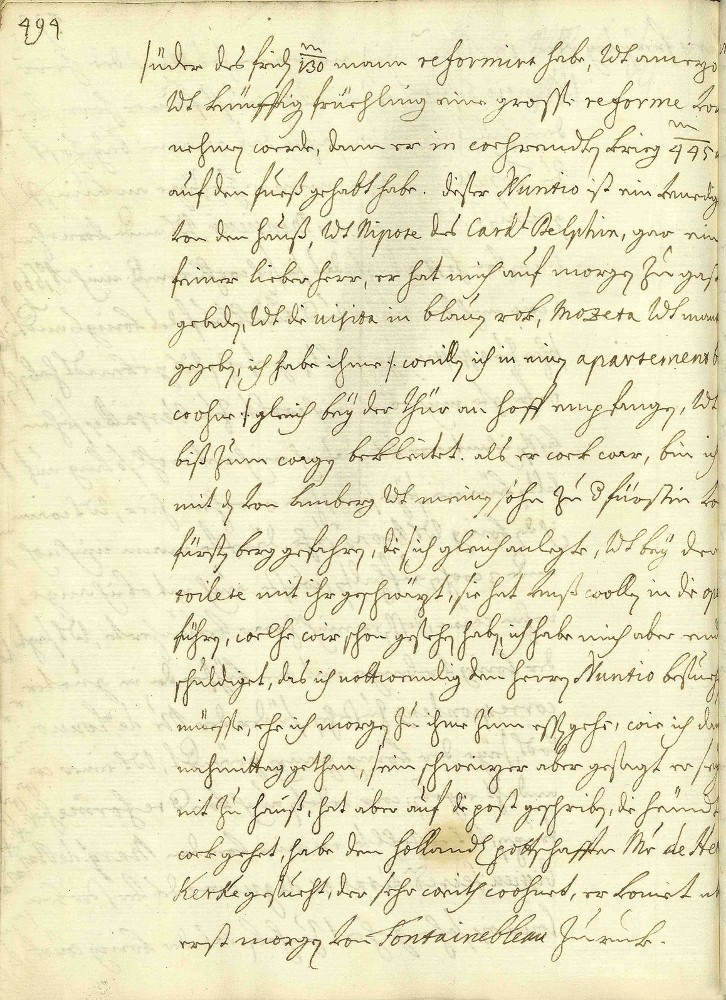 494
süder des fridh 130 mann reformirt habe, Vdt an iezo
Vdt künfftig früehling eine grosse reforme vor
nehmen werde, dann er in wehrendten krieg 445
auf den fueß gehabt habe. dißer Nuntio ist ein venedig
von den hauß, Vdt Nipote des Cardl Delphin, gar ein
feiner lieber herr, er hat mich auf morgen zu gast
gebeden, Vdt die visita in blauen rok, Mozeta Vdt mant
gegeben, ich habe ihme /: weillen ich in einen apartement
wohne :/ gleich bey der thür an hoff empfangen, Vdt
biß zum wagen bekleitet. als er weck war, bin ich
mit den von Lamberg Vdt meinen sohn zu d fürstin vo
fürstenberg gefahren, die sich gleich anlegte, Vdt bey der
toilete mit ihr geschwäzt, sie hat vnß wollen in die op
führen, welche wir schon gesehen haben, ich habe mich aber ent
schuldiget, das ich nottwendig den herrn Nuntio besuech
müesse, ehe ich morgen zu ihme zum essen gehe, wie ich dan
nahmittag gethan, sein schweizer aber gesagt er seye
nit zu hauß, hat aber auf die post geschriben, die heündt
weck gehet, habe den holländl pottschaffter Mr de He
Kerke gesucht, der sehr weith wohnet, er komet ab
erst morgen von Fontainebleau zuruck.